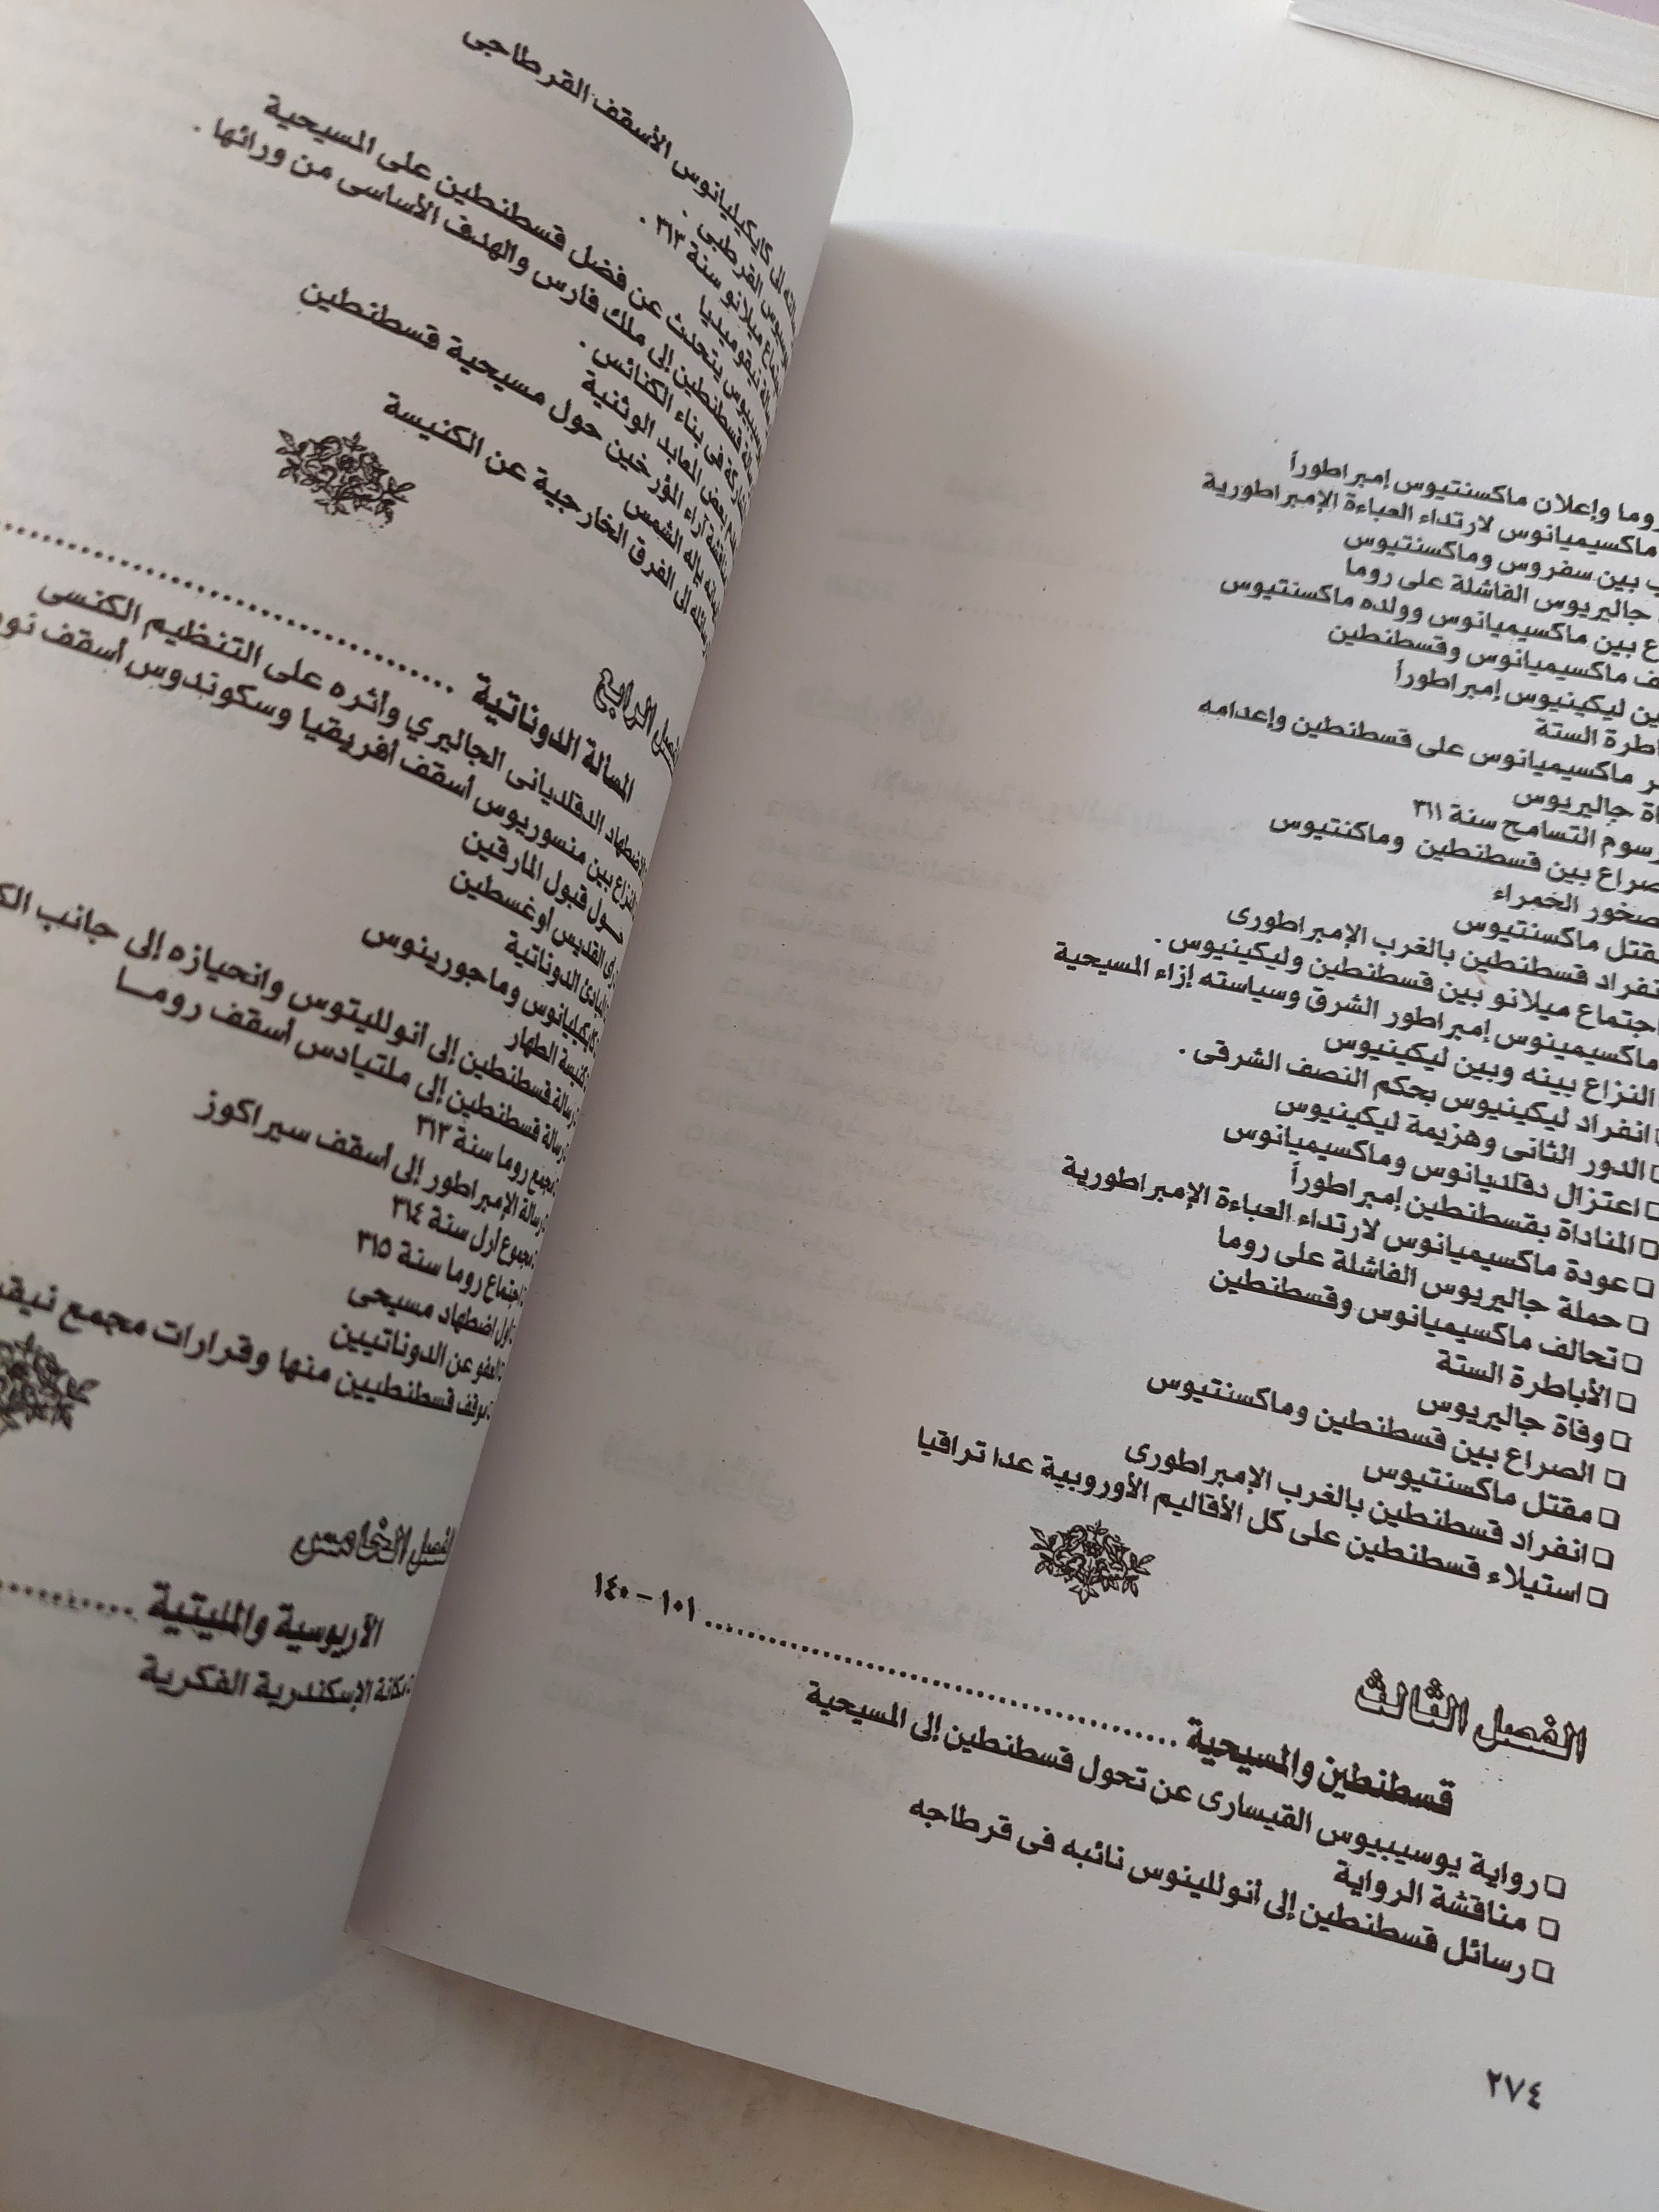 روما وإعلان ماكسنتيوس إمبراطوراً
ماكسيميانوس لارتداء العباءة الإمبراطورية
بين سفروس وماكسنتيوس
جاليريوس الفاشلة على روما
بين ماكسيميانوس وولده ماكسنتيوس
ماكسيميانوس وقسطنطين
ليكينيوس إمبراطوراً
الستة
ماكسيميانوس على قسطنطين وإعدامه
جاليريوس
التسامح سنة ٣١١
بين قسطنطين وماكنتيوس
الخمراء
ماكسنتيوس
قسطنطين بالغرب الإمبراطورى
اجتماع ميلانو بين قسطنطين وليكينيوس .
ماكسيمينوس إمبراطور الشرق وسياسته إزاء المسيحية
النزاع بينه وبين ليكينيوس
□ انفراد ليكينيوس بحكم النصف الشرقى .
□ الدور الثانى وهزيمة ليكينيوس
□ اعتزال دقلديانوس وماكسيميانوس
□ المناداة بقسطنطين إمبراطوراً
□ عودة ماكسيميانوس لارتداء العباءة الإمبراطورية
□ حملة جاليريوس الفاشلة على روما
□ تحالف ماكسيميانوس وقسطنطين
□ الأباطرة الستة
□ وفاة جاليريوس
□ الصراع بين قسطنطين وماكسنتيوس
□ مقتل ماكسنتيوس
□ انفراد قسطنطين بالغرب الإمبراطورى
□ استيلاء قسطنطين على كل الأقاليم الأوروبية عدا تراقيا
الفصل الثالث
قسطنطين والمسيحية ........................................ ١٠١ – ١٤٠
□ رواية يوسيبيوس القيسارى عن تحول قسطنطين إلى المسيحية
□ مناقشة الرواية
□ رسائل قسطنطين إلى أنوللينوس نائبه فى قرطاجه
٢٧٤
إلى كايكيليانوس الأسقف القرطاجى
القرطبى .
ميلانو سنة ٣١٣ .
نيقوميديا
يتحدث عن فضل قسطنطين على المسيحية
قسطنطين إلى ملك فارس والهدف الأساسى من ورائها .
فى بناء الكنائس .
بعض المعابد الوثنية
آراء المؤرخين حول مسيحية قسطنطين
بإله الشمس
إلى الفرق الخارجية عن الكنيسة
الفصل الرابع
المسالة الدوناتية ........................................
الاضطهاد الدقلديانى الجاليري وأثره على التنظيم الكنسى
النزاع بين منسوريوس أسقف أفريقيا وسكوندوس أسقف
حول قبول المارقين
القديس أوغسطين
المبادئ الدوناتية
كايكيليانوس وماجورينوس
كنيسة الطهار
رسالة قسطنطين إلى أنولليتوس وانحيازه إلى جانب
رسالة قسطنطين إلى ملتيادس أسقف رومـا
مجمع روما سنة ٣١٣
رسالة الإمبراطور إلى أسقف سيراكوز
مجموع أرل سنة ٣٦٤
اجتماع روما سنة ٣١٥
أول اضطهاد مسيحى
العفو عن الدوناتيين
موقف قسطنطيين منها وقرارات مجمع
الفصل الخامس
الأريوسية والمليتية ...............
مكانة الإسكندرية الفكرية